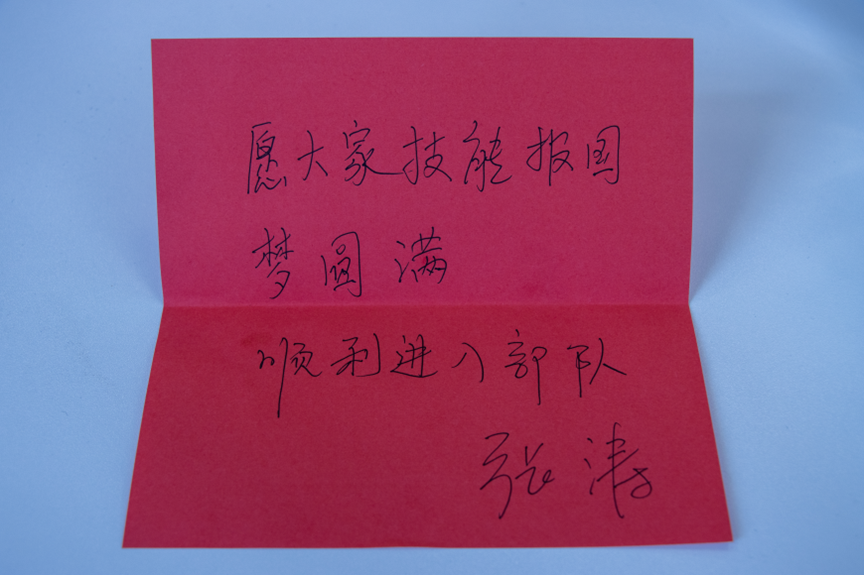 愿大家技能报国
梦圆满
顺利进入部队
张涛